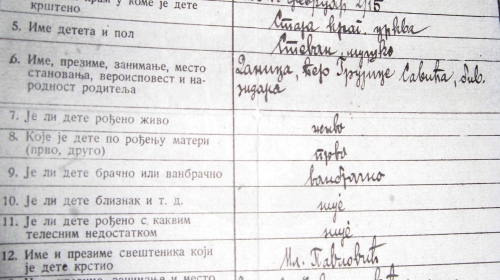 у коме је дете
крштено
фебруар
Стара црква
5. Име детета и пол
Стеван, мушко
6. Име, презиме, занимање, место
становања, вероисповест и на-
родност родитеља
Даница, кћер Грујице Савића, бив.
зидара
7. Је ли дете рођено живо
живо
8. Које је дете по рођењу матери
(прво, друго)
прво
9. Је ли дете брачно или ванбрачно
ванбрачно
10. Је ли дете близнак и т. д.
није
11. Је ли дете рођено с каквим
телесним недостатком
није
12. Име и презиме свештеника који
је дете крстио
Мл. Павловић